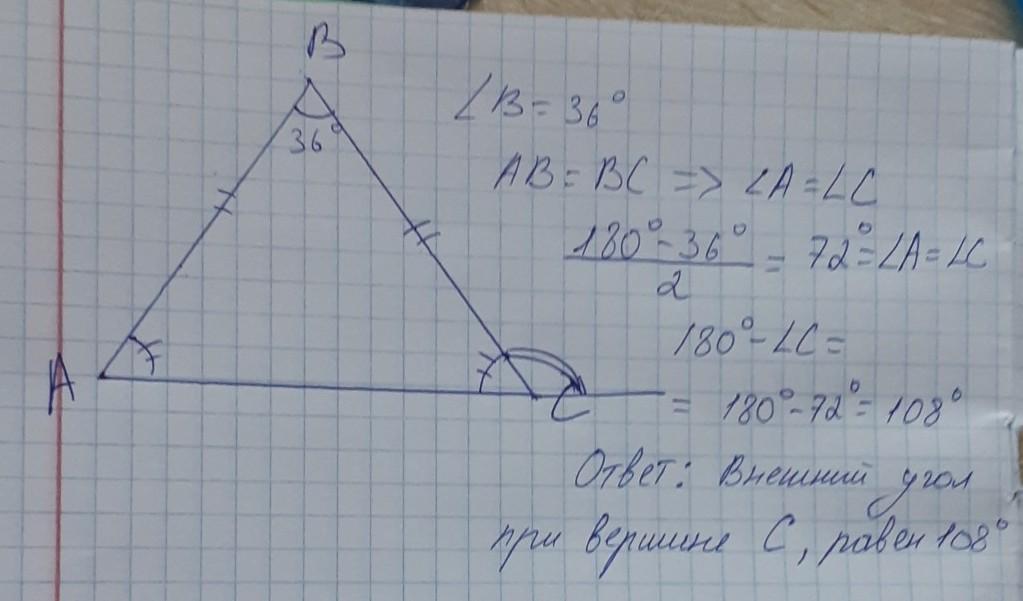 B
36°
A
C
∠B = 36°
AB = BC => ∠A = ∠C
180° - 36°
2
= 72° = ∠A = ∠C
180° - ∠C =
= 180° - 72° = 108°
Ответ: Внешний угол
при вершине C, равен 108°